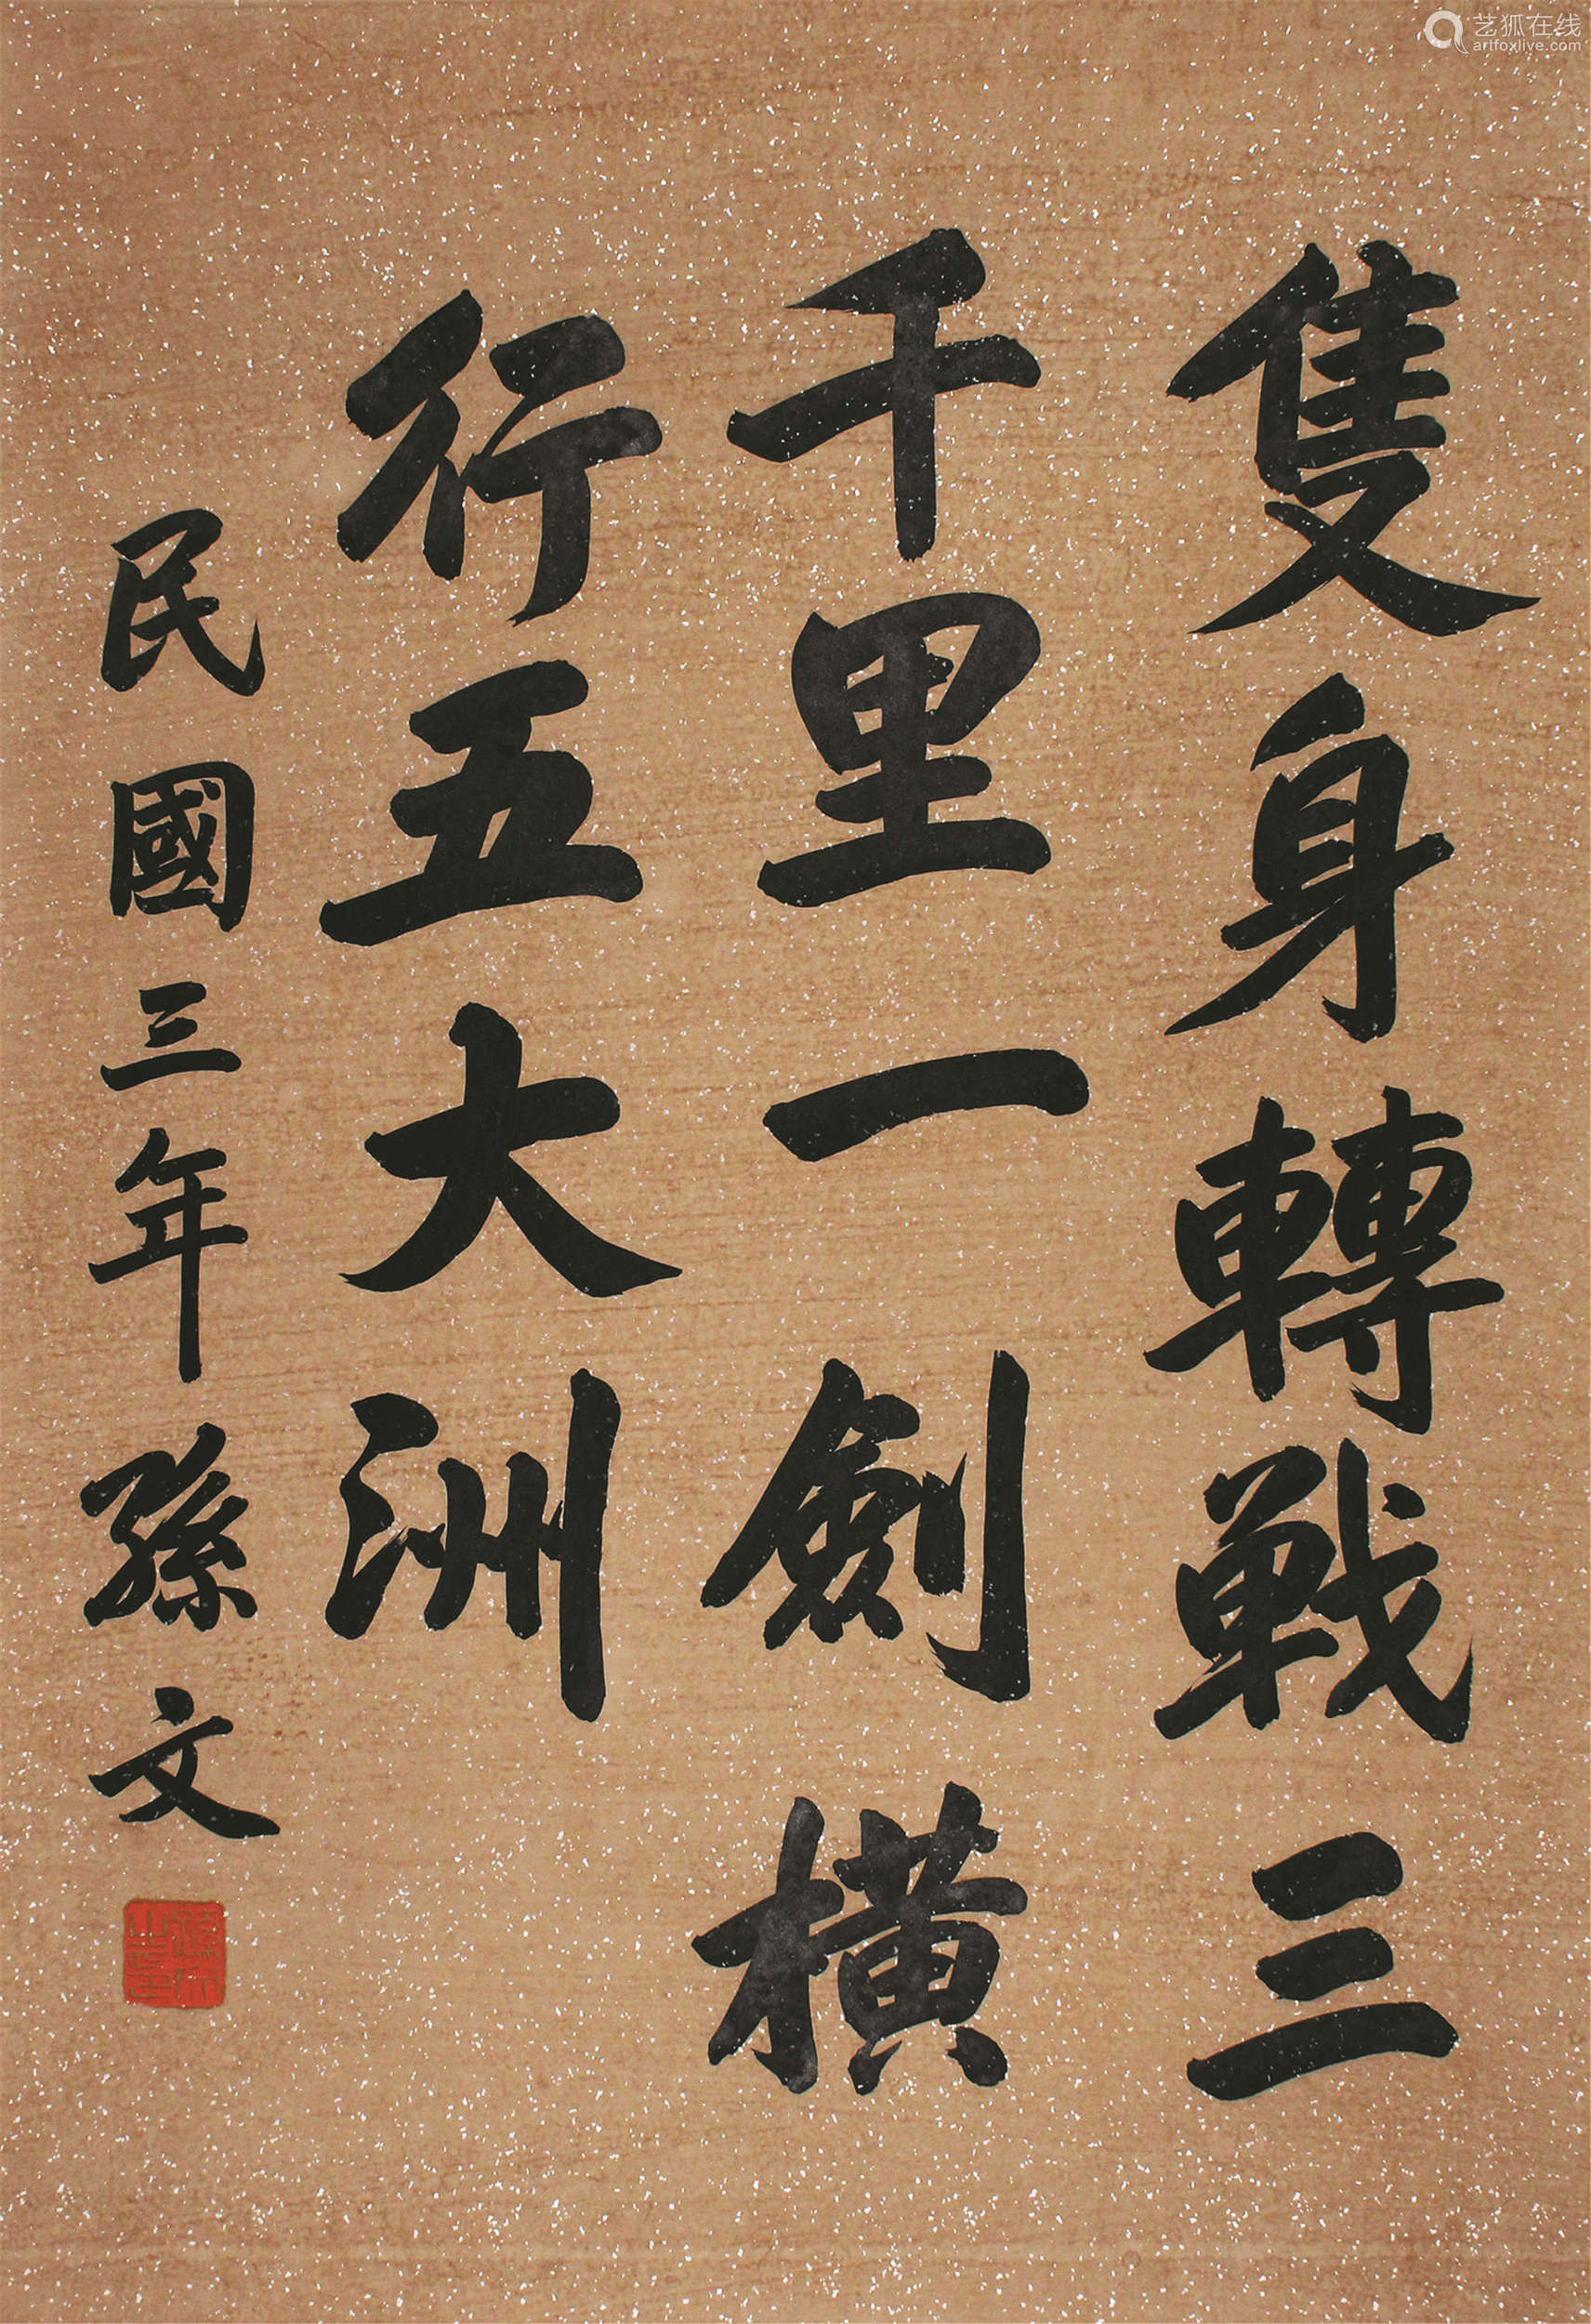 隻身轉戰三
千里一劍橫
行五大洲
民國三年孫文
艺狐在线
artfoxlive.com